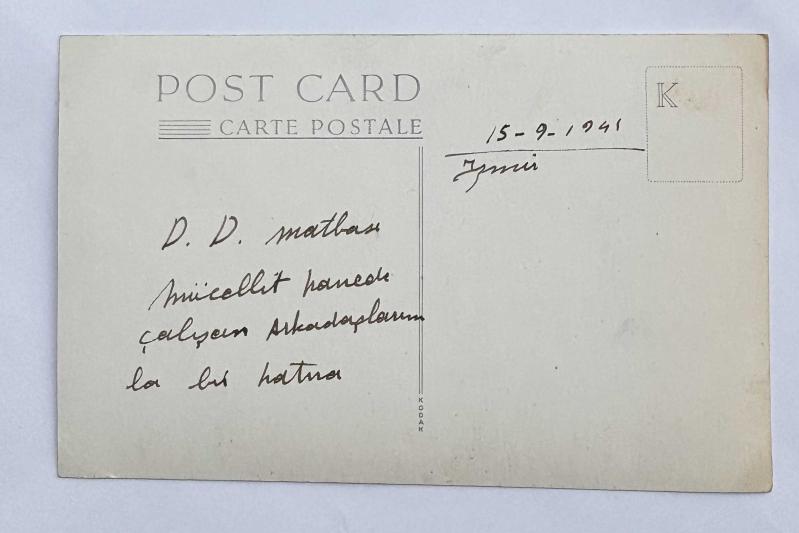 POST CARD
CARTE POSTALE
K
15-9-1941
İzmir
D. D. matbası
mücellit hanede
çalışan Arkadaşlarım
la bir hatıra
KODAK